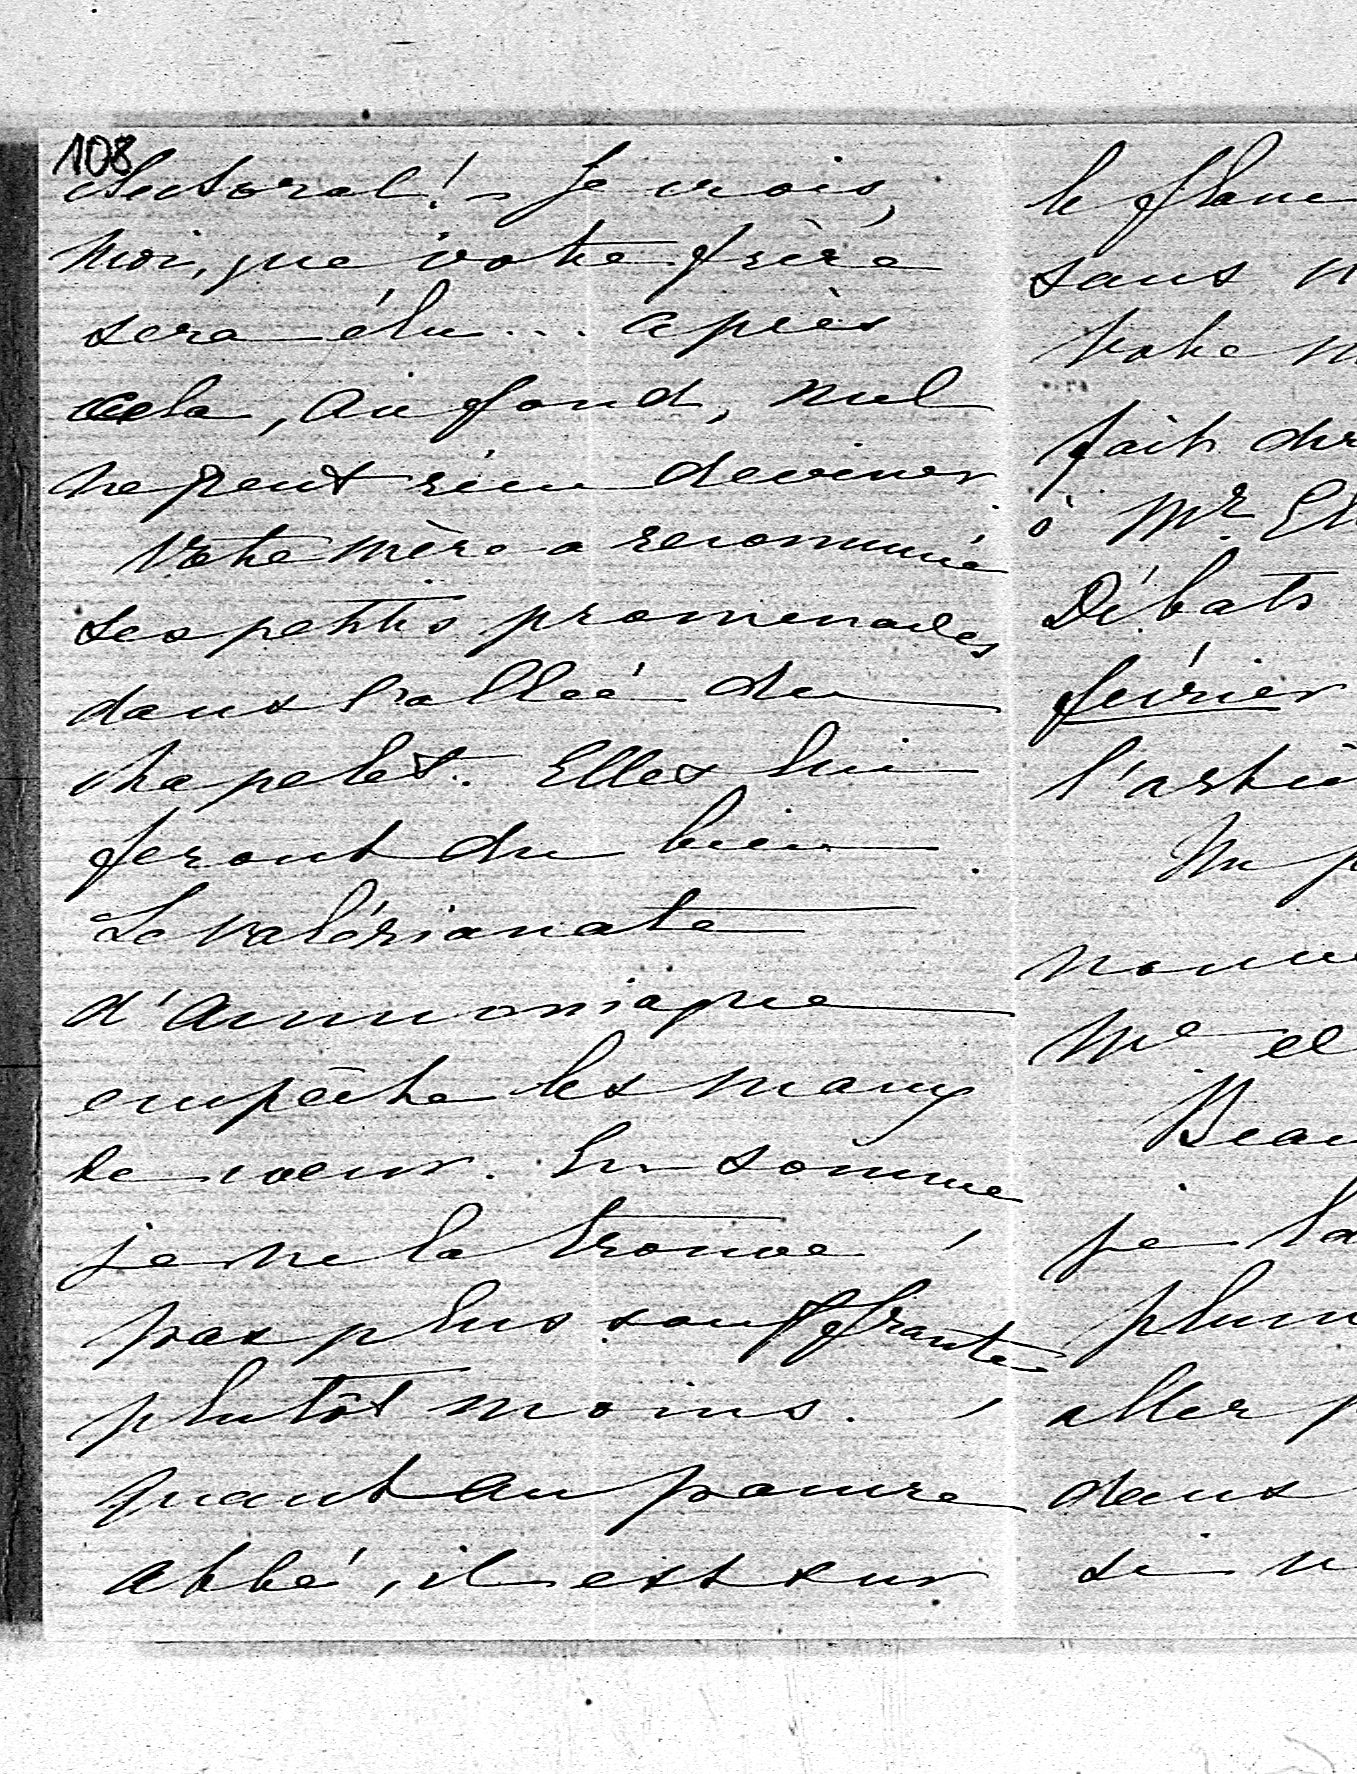 108
électoral! Je crois,
moi, que votre frère
sera élu... après
cela, au fond, nul
ne peut rien deviner
Votre mère a recommencé
ses petites promenades
dans l'allée du
chapelet. Elles lui
feront du bien
Le valérianate
d'ammoniaque
empêche les maux
de cœur. En somme
je ne la trouve
pas plus souffrante
plutôt moins.
quant au pauvre
abbé, il est sur
le flanc
sans
Votre
fait
à Mr
Débats
février
l'
Un

Me et

je
plum
aller
dans
si